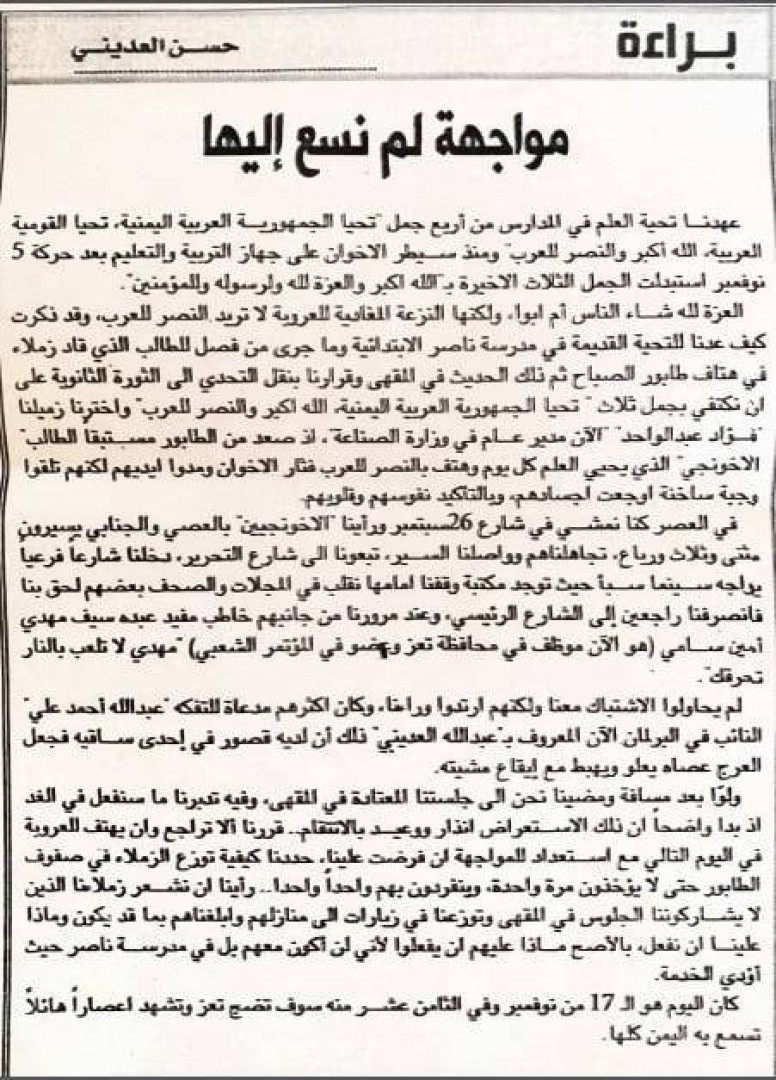 بـراءة
حسـن العديـني
مواجهة لم نسع إليها
عهدنـا تحية العلم في المدارس من أربع جمل "تحيا الجمهوريـة العربية اليمنية، تحيا القومية
العربية، الله اكبر والنصر للعرب" ومنذ سـيطر الاخوان على جهاز التربية والتعليم بعد حركة 5
نوفمبر استبدلت الجمل الثلاث الاخيرة بـ"الله اكبر والعزة لله ولرسوله وللمؤمنين".
العزة لله شـاء الناس أم ابوا، ولكنها النزعة المعادية للعروبة لا تريد النصر للعرب، وقد ذكرت
كيف عدنا للتحية القديمة في مدرسة ناصر الابتدائية وما جرى من فصل للطالب الذي قاد زملاء
في هتاف طابور الصباح ثم ذلك الحديث في المقهى وقرارنا بنقل التحدي الى الثورة الثانوية على
ان نكتفي بجمل ثلاث " تحيا الجمهورية العربية اليمنية، الله اكبر والنصر للعرب" واخترنا زميلنا
"فـؤاد عبدالواحد" "الآن مدير عـام في وزارة الصناعة"، اذ صعد من الطابور مسـتبقاً الطالب"
الاخونجي" الذي يحيي العلم كل يوم وهتف بالنصر للعرب فثار الاخوان ومدوا ايديهم لكنهم تلقوا
وجبة ساخنة اوجعت اجسادهم، وبالتاكيد نفوسهم وقلوبهم.
في العصر كنا نمشي في شارع 26سبتمبر ورأينا "الاخونجيين" بالعصي والجنابي يسيرون
مثنى وثلاث ورباع، تجاهلناهم وواصلنا السير، تبعونا الى شارع التحرير، دخلنا شارعاً فرعياً
يواجه سـينما سـبأ حيث توجد مكتبة وقفنا امامها نقلب في المجلات والصحف بعضهم لحق بنا
فانصرفنا راجعين إلى الشارع الرئيسي، وعند مرورنا من جانبهم خاطب مفيد عبده سيف مهدي
أمين سـامي (هو الآن موظف في محافظة تعز وعضو في المؤتمر الشعبي) "مهدي لا تلعب بالنار
تحرقك".
لم يحاولوا الاشتباك معنا ولكنهم ارتدوا وراءنا، وكان اكثرهم مدعاة للتفكه "عبدالله أحمد علي"
النائب في البرلمان الآن المعروف بـ"عبدالله العديني" ذلك أن لديه قصور في إحدى سـاقيه فجعل
العرج عصاه يعلو ويهبط مع إيقاع مشيته.
ولوّا بعد مسـافة ومضينا نحن الى جلستنا المعتادة في المقهى، وفيه تدبرنا ما سنفعل في الغد
اذ بدا واضحاً ان ذلك الاسـتعراض انذار ووعيـد بالانتقام.. قررنا ألا تراجع وان يهتف للعروبة
في اليوم التالي مع اسـتعداد للمواجهة ان فرضت علينا، حددنا كيفية توزع الزملاء في صفوف
الطابور حتى لا يؤخذون مرة واحدة، وينفردون بهم واحداً واحدا.. رأينا ان نشـعر زملاءنا الذين
لا يشـاركوننا الجلوس في المقهى وتوزعنا في زيارات الى منازلهم وابلغناهم بما قد يكون وماذا
علينـا ان نفعل، بالأصح مـاذا عليهم ان يفعلوا لأني لن أكون معهم بل في مدرسـة ناصر حيث
أؤدي الخدمة.
كان اليوم هو الـ 17 من نوفمبر وفي الثامن عشـر منه سوف تضج تعز وتشهد اعصاراً هائلاً
تسمع به اليمن كلها.